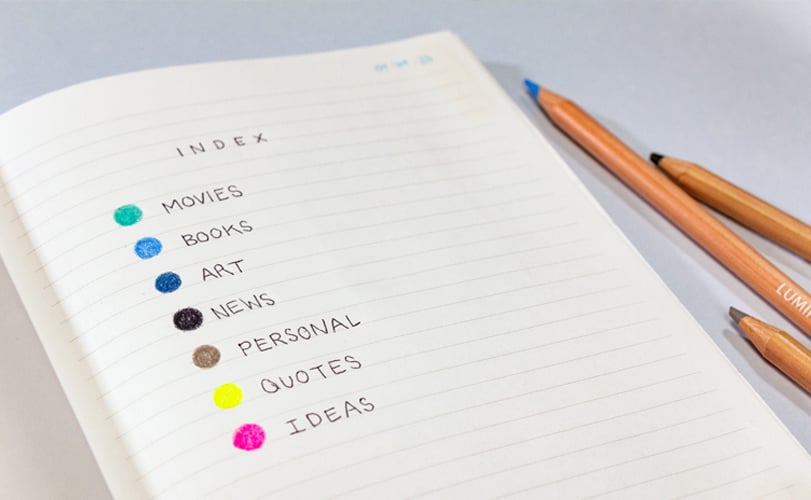 INDEX
MOVIES
BOOKS
ART
NEWS
PERSONAL
QUOTES
IDEAS